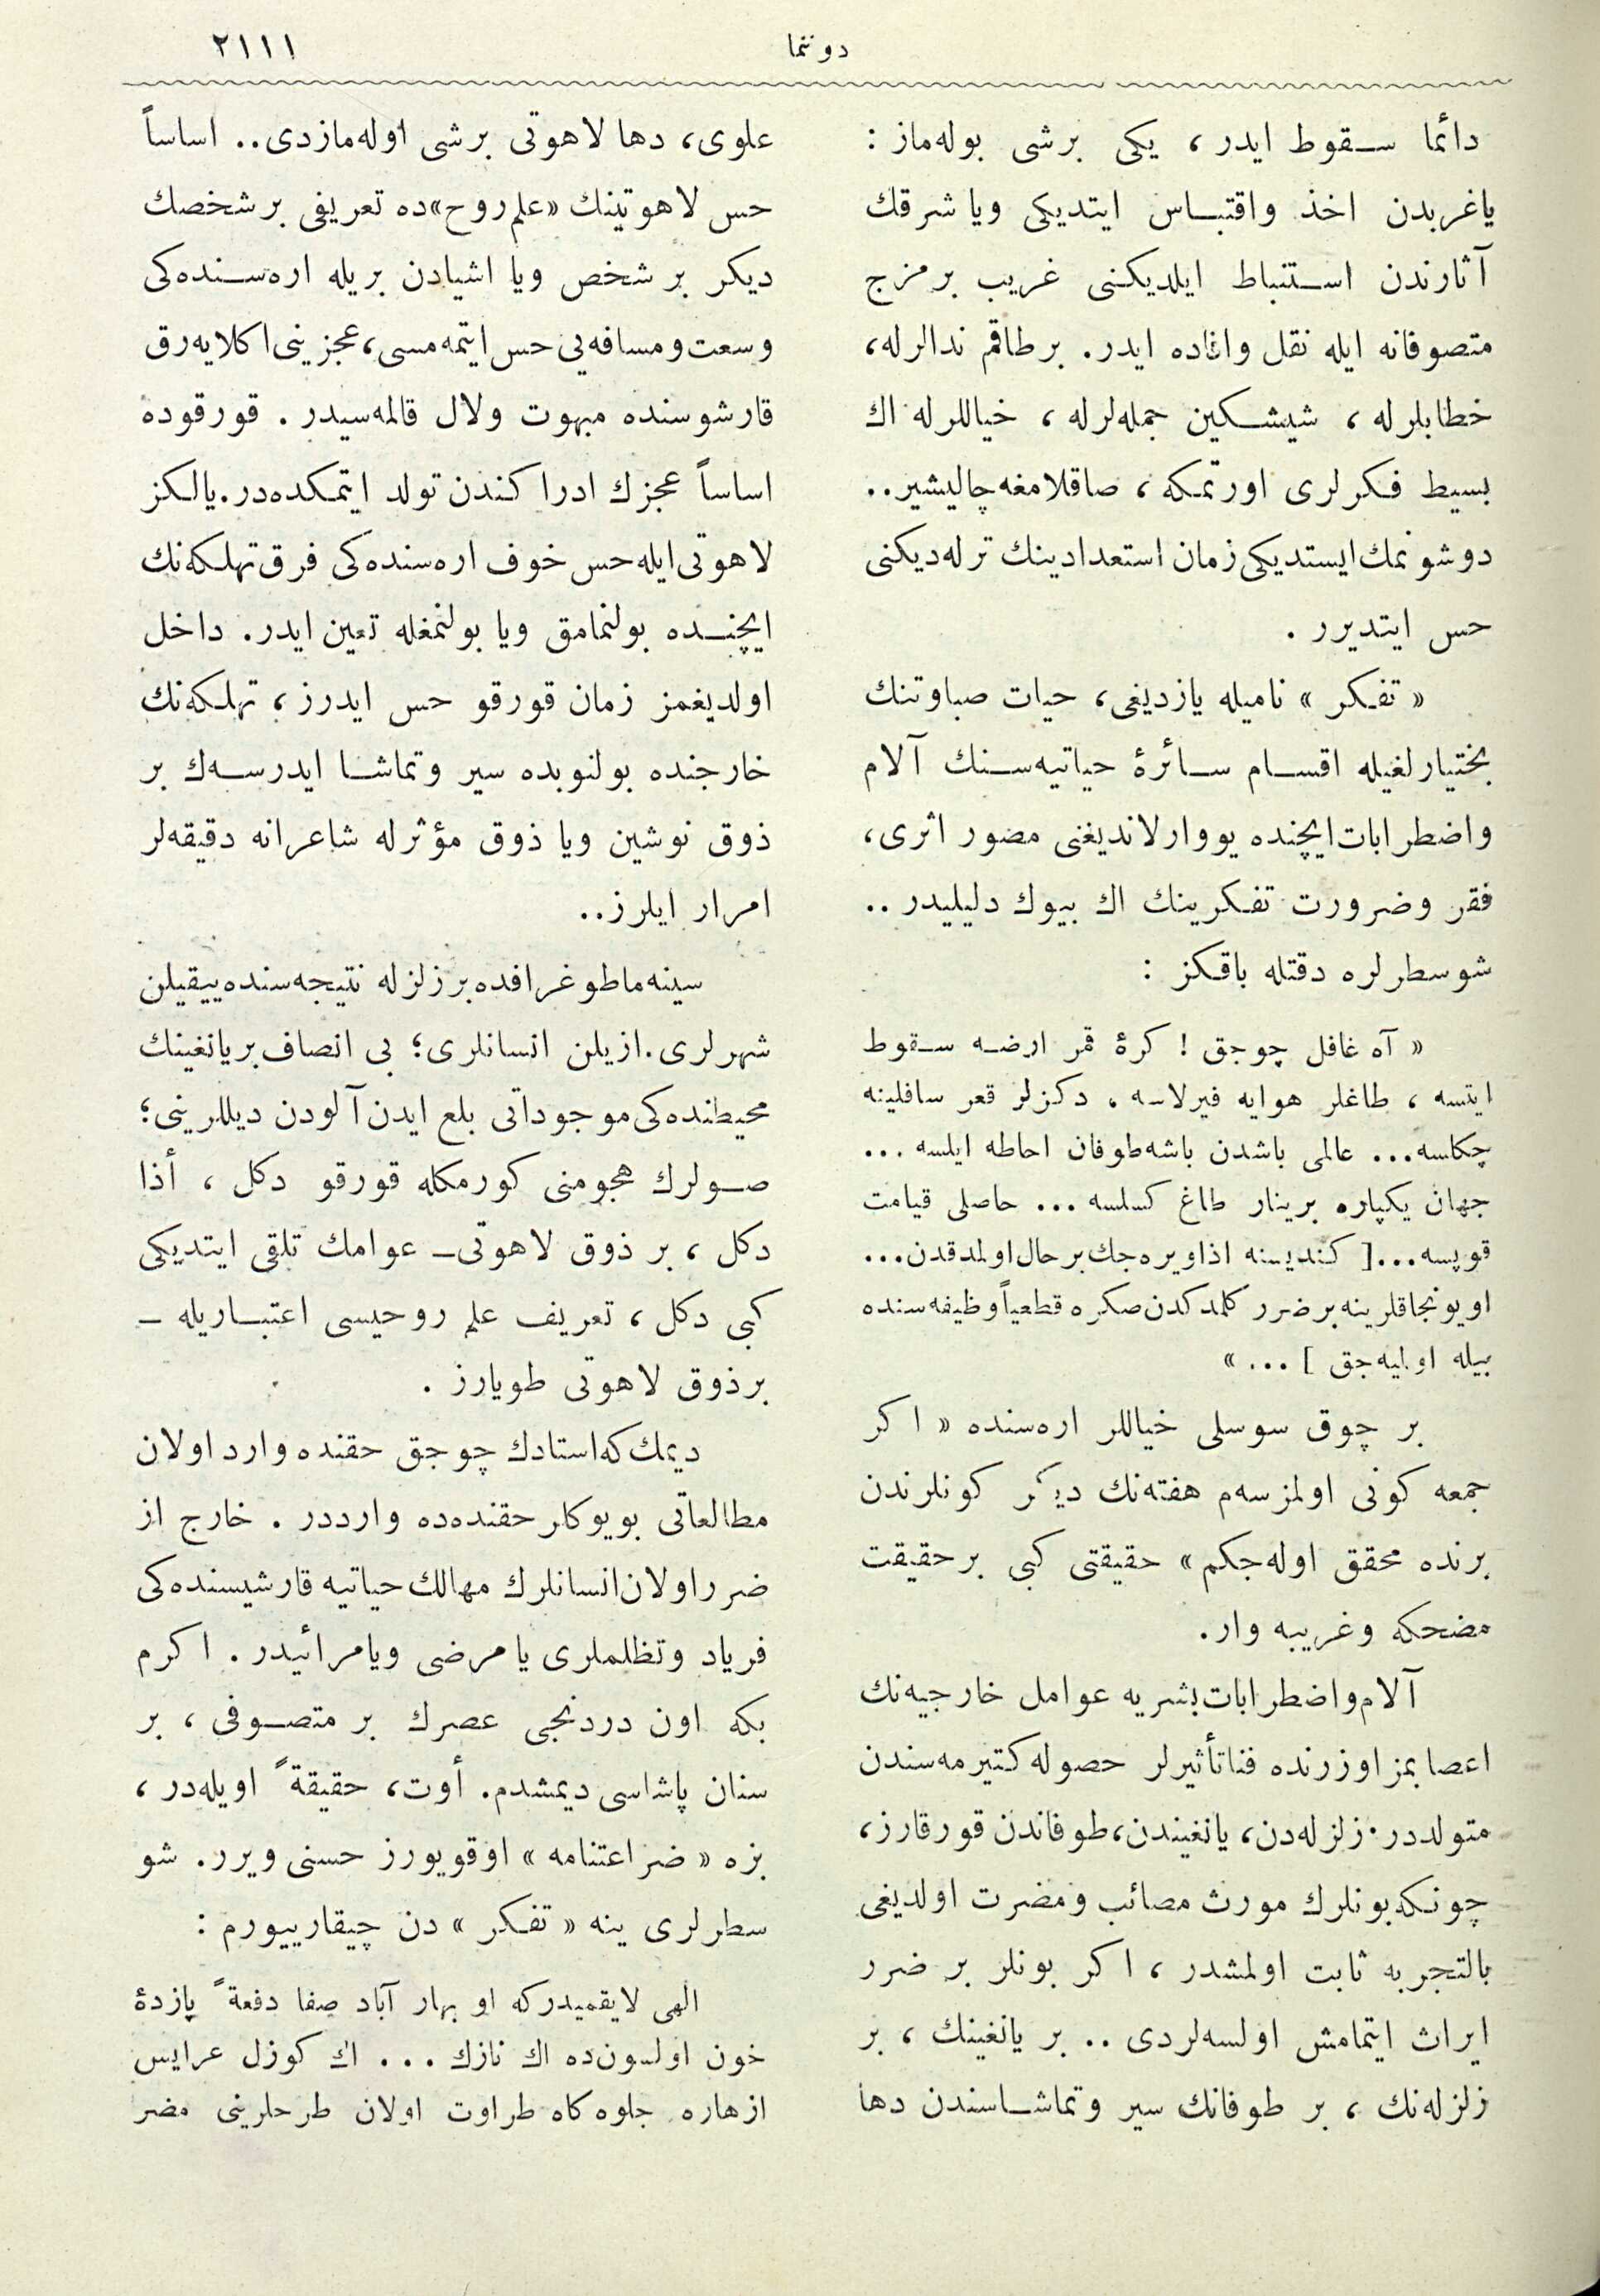 دوننما
٢١١١
دائما سقوط ايدر ، يكی برشی بوله‌ماز :
ياغربدن اخذ واقتباس ايتديكی ويا شرقك
آثارندن استنباط ايلديكنی غريب برمزج
متصوفانه ايله نقل وافاده ايدر. برطاقم ندالرله،
خطابلرله ، شيشكين جمله‌لرله ، خياللرله اك
بسيط فكرلری اورتمكه ، صاقلامغه چاليشير..
دوشونمك ايستديكی زمان استعدادينك ترله‌ديكنی
حس ايتديرر .
« تفكر » ناميله يازديغی، حيات صباوتنك
بختيارلغيله اقسام سائرهٔ حياتيه‌سنك آلام
واضطرابات ايچنده يووارلانديغنی مصور اثری،
فقر وضرورت تفكرينك اك بيوك دليليدر ..
شوسطرلره دقتله باقكز :
« آه غافل چوجق ! كرهٔ قمر ارضه سقوط
ايتسه ، طاغلر هوايه فيرلاسه ، دكزلر قعر سافلينه
چكلسه... عالمی باشدن باشه طوفان احاطه ايلسه ...
جهان يكپاره برينار طاغ كسلسه ... حاصلی قيامت
قوپسه...[ كنديسنه اذا ويره‌جك برحال اولمدقدن...
اويونجاقلرينه برضرر كلمدكدن صكره قطعياً وظيفه‌سنده
بيله اولميه‌جق ] ... »
بر چوق سوسلی خياللر اره‌سنده « اكر
جمعه كونی اولمزسه‌م هفته‌نك ديكر كونلرندن
برنده محقق اوله‌جكم » حقيقتی كبی برحقيقت
مضحكه وغريبه وار.
آلام واضطرابات بشريه عوامل خارجيه‌نك
اعصابمز اوزرنده فنا تأثيرلر حصوله كتيرمه‌سندن
متولددر. زلزله‌دن، يانغيندن، طوفاندن قورقارز،
چونكه بونلرك مورث مصائب ومضرت اولديغی
بالتجربه ثابت اولمشدر ، اكر بونلر بر ضرر
ايراث ايتمامش اولسه‌لردی .. بر يانغينك ، بر
زلزله‌نك ، بر طوفانك سير وتماشاسندن دها
علوی، دها لاهوتی برشی اوله‌مازدی.. اساساً
حس لاهوتينك «علم روح»ده تعريفی برشخصك
ديكر برشخص ويا اشيادن بريله اره‌سنده‌كی
وسعت ومسافه‌يی حس ايتمه‌مسی، عجزينی اكلايه‌رق
قارشوسنده مبهوت ولال قالمه‌سيدر . قورقوده
اساساً عجزك ادراكندن تولد ايتمكده‌در. يالكز
لاهوتی ايله حس خوف اره‌سنده‌كی فرق تهلكه‌نك
ايچنده بولنمامق ويا بولنمغله تعين ايدر. داخل
اولديغمز زمان قورقو حس ايدرز ، تهلكه‌نك
خارجنده بولنوبده سير وتماشا ايدرسه‌ك بر
ذوق نوشين ويا ذوق مؤثرله شاعرانه دقيقه‌لر
امرار ايلرز..
سينه‌ماطوغرافده برزلزله نتيجه‌سنده ييقيلن
شهرلری. ازيلن انسانلری؛ بی انصاف بريانغينك
محيطنده‌كی موجوداتی بلع ايدن آلودن ديللرينی؛
صولرك هجومنی كورمكله قورقو دكل ، أذا
دكل ، بر ذوق لاهوتی ـ عوامك تلقی ايتديكی
كبی دكل ، تعريف علم روحيسی اعتباريله ـ
برذوق لاهوتی طويارز .
ديمك كه استادك چوجق حقنده وارد اولان
مطالعاتی بويوكلر حقنده‌ده وارددر . خارج از
ضرر اولان انسانلرك مهالك حياتيه قارشيسنده‌كی
فرياد وتظلملری يا مرضی ويا مرائيدر . اكرم
بكه اون دردنجی عصرك بر متصوفی ، بر
سنان پاشاسی ديمشدم. أوت، حقيقةً اويله‌در ،
بزه « ضراعتنامه » اوقويورز حسنی ويرر. شو
سطرلری ينه « تفكر » دن چيقارييورم :
الهی لايقميدركه او بهار آباد صفا دفعةً يازدهٔ
خون اولسون‌ده اك نازك ... اك كوزل عرايس
ازهاره جلوه‌كاه طراوت اولان طرحلرينی مضر